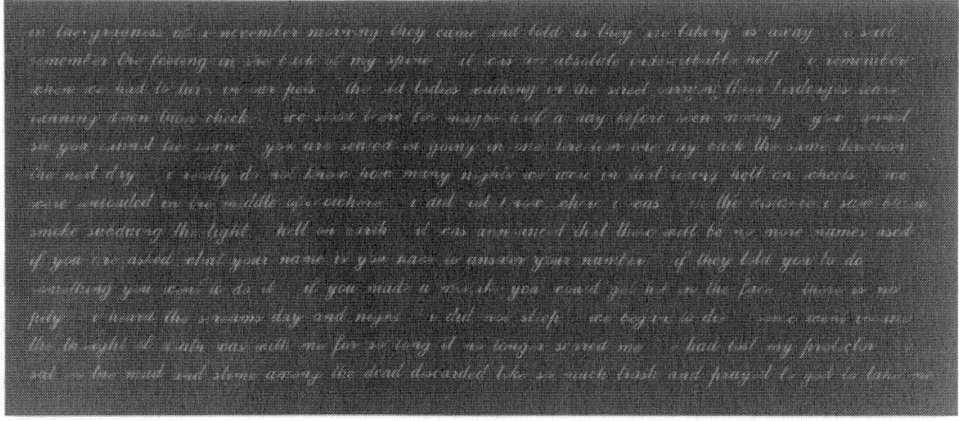 in the grayness of a november morning they came and told us they are taking us away i still
remember the feeling in the back of my spine it was an absolute indescribable hell i remember
when we had to turn in our pets the old ladies walking in the street carrying their birdcages tears
running down their cheek we must have maybe half a day before even moving you
so you cannot be seen you are scared in going in one direction one day back the same direction
the next day i really do not know how many nights we were in that hell on wheels we
were unloaded in the middle of nowhere i did not know where i was in the distance i saw
smoke subduing the light hell on earth it was announced that there will be no more names used
if you are asked what your name is you have to answer your number if they told you to do
something you do it if you made a mistake you could get hit in the face there is no
pity i heard the screams day and night i did not sleep we began to die some went insane
the thought of death was with me for so long it no longer scared me had lost my protector
sat in the mud and slime among the dead discarded like so much trash and prayed to god to take me